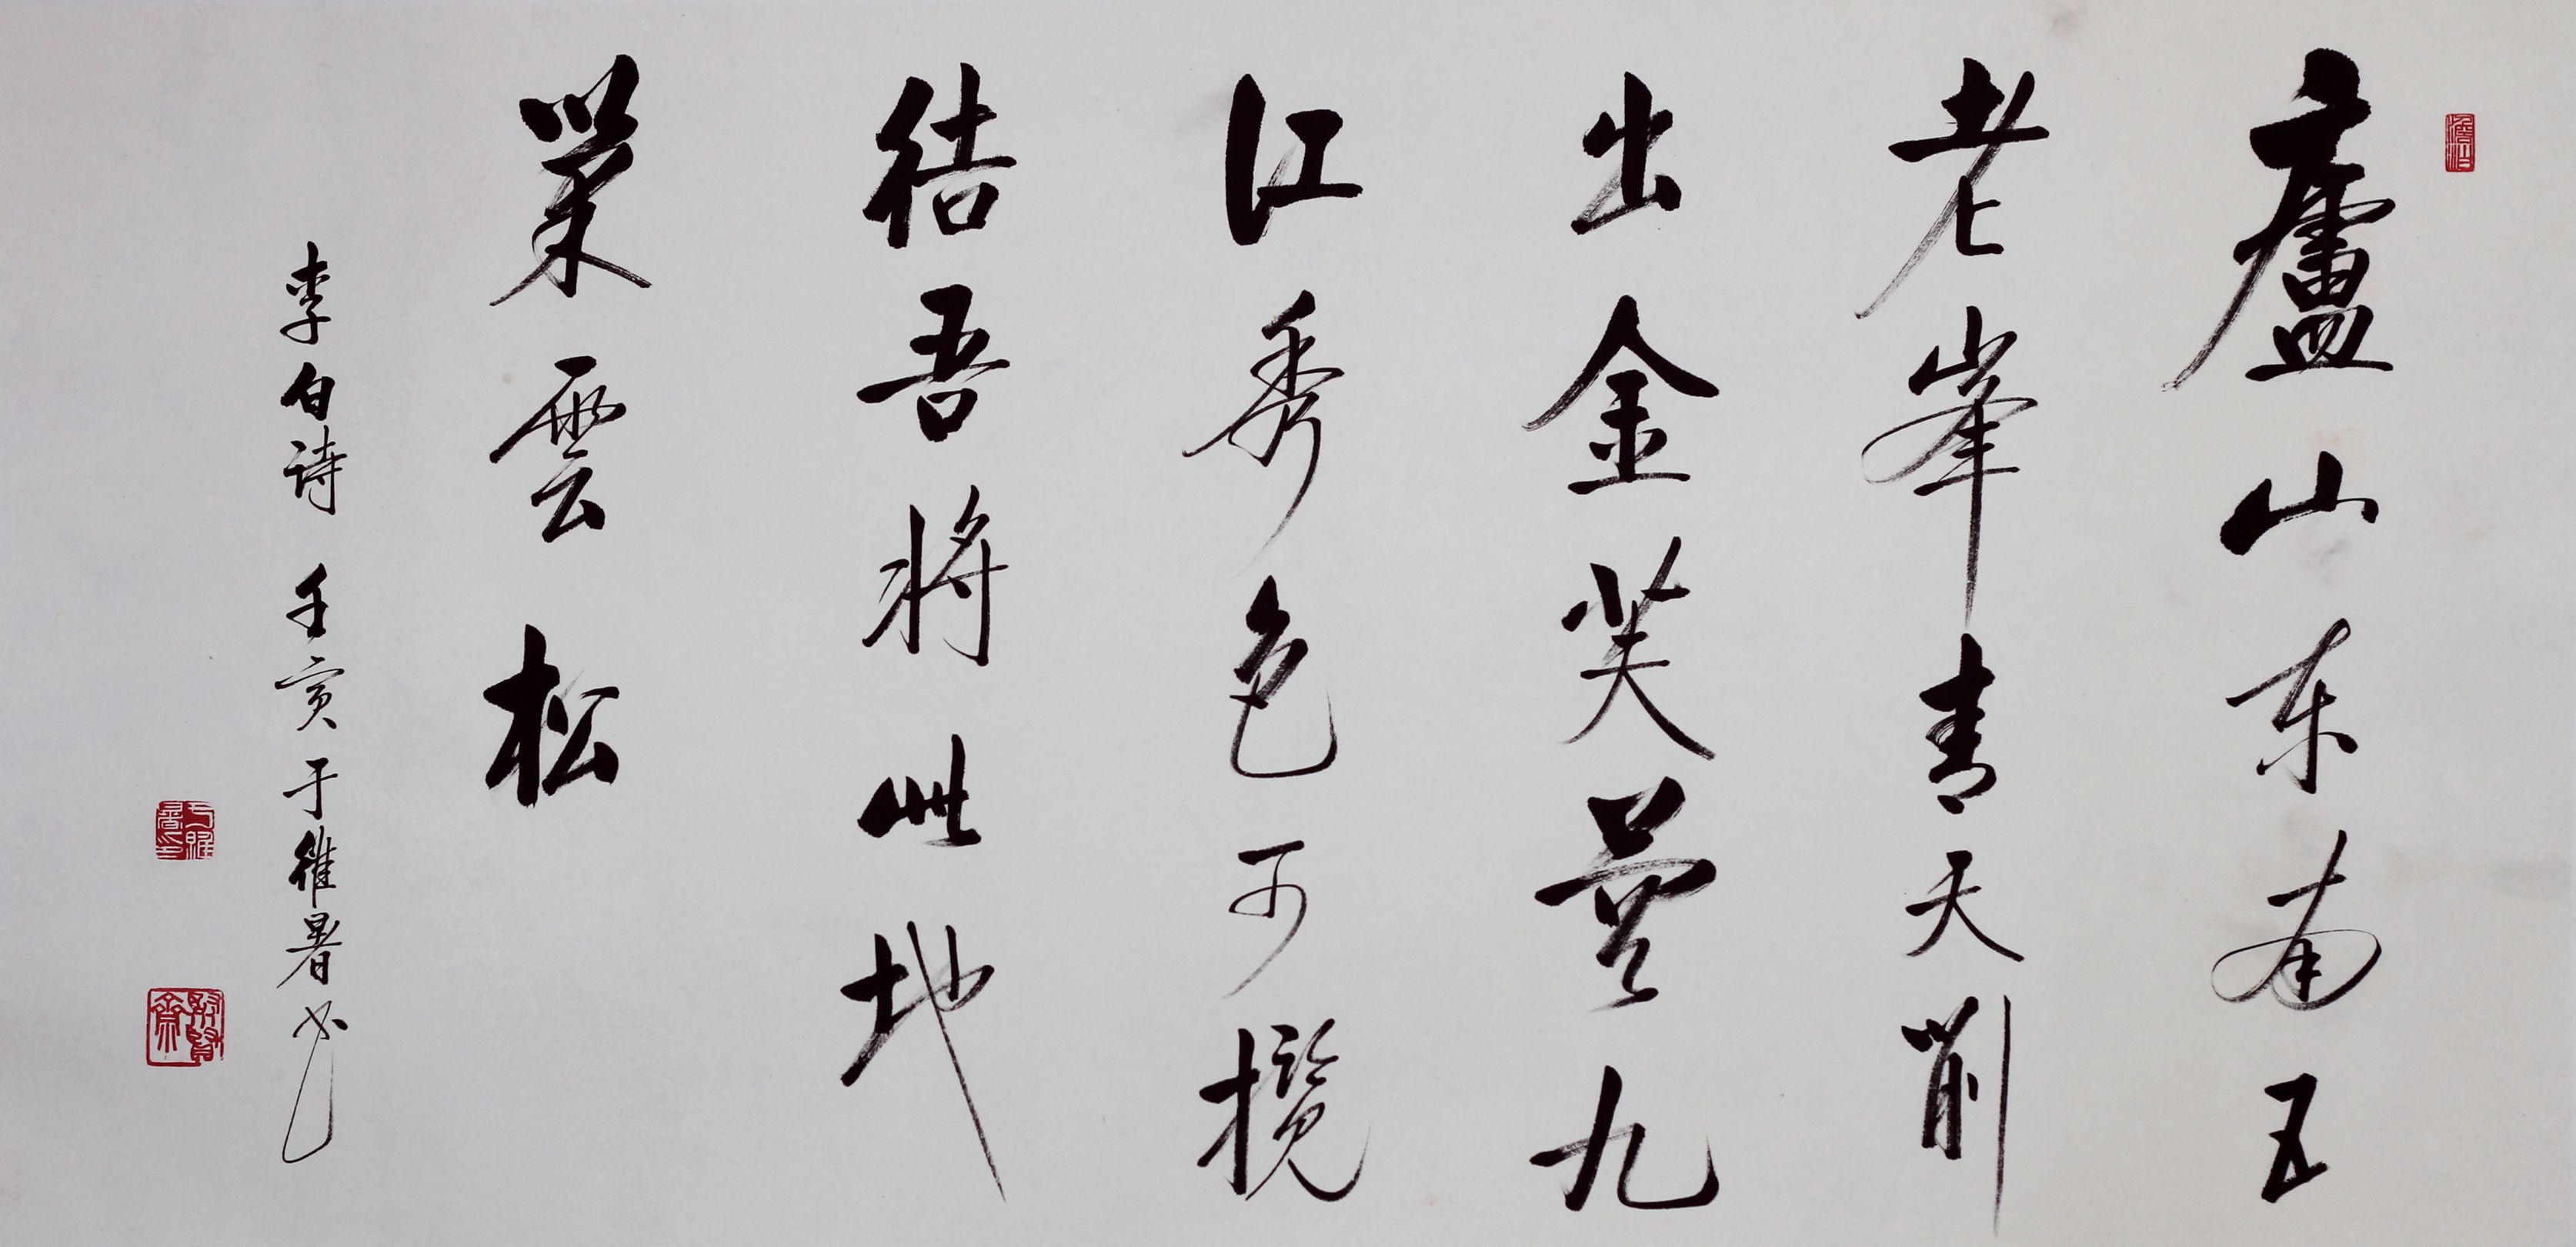 廬山东南五
老峯青天削
出金芙蓉九
江秀色可揽
结吾將此地
巢雲松
李白诗 壬寅于維暑书